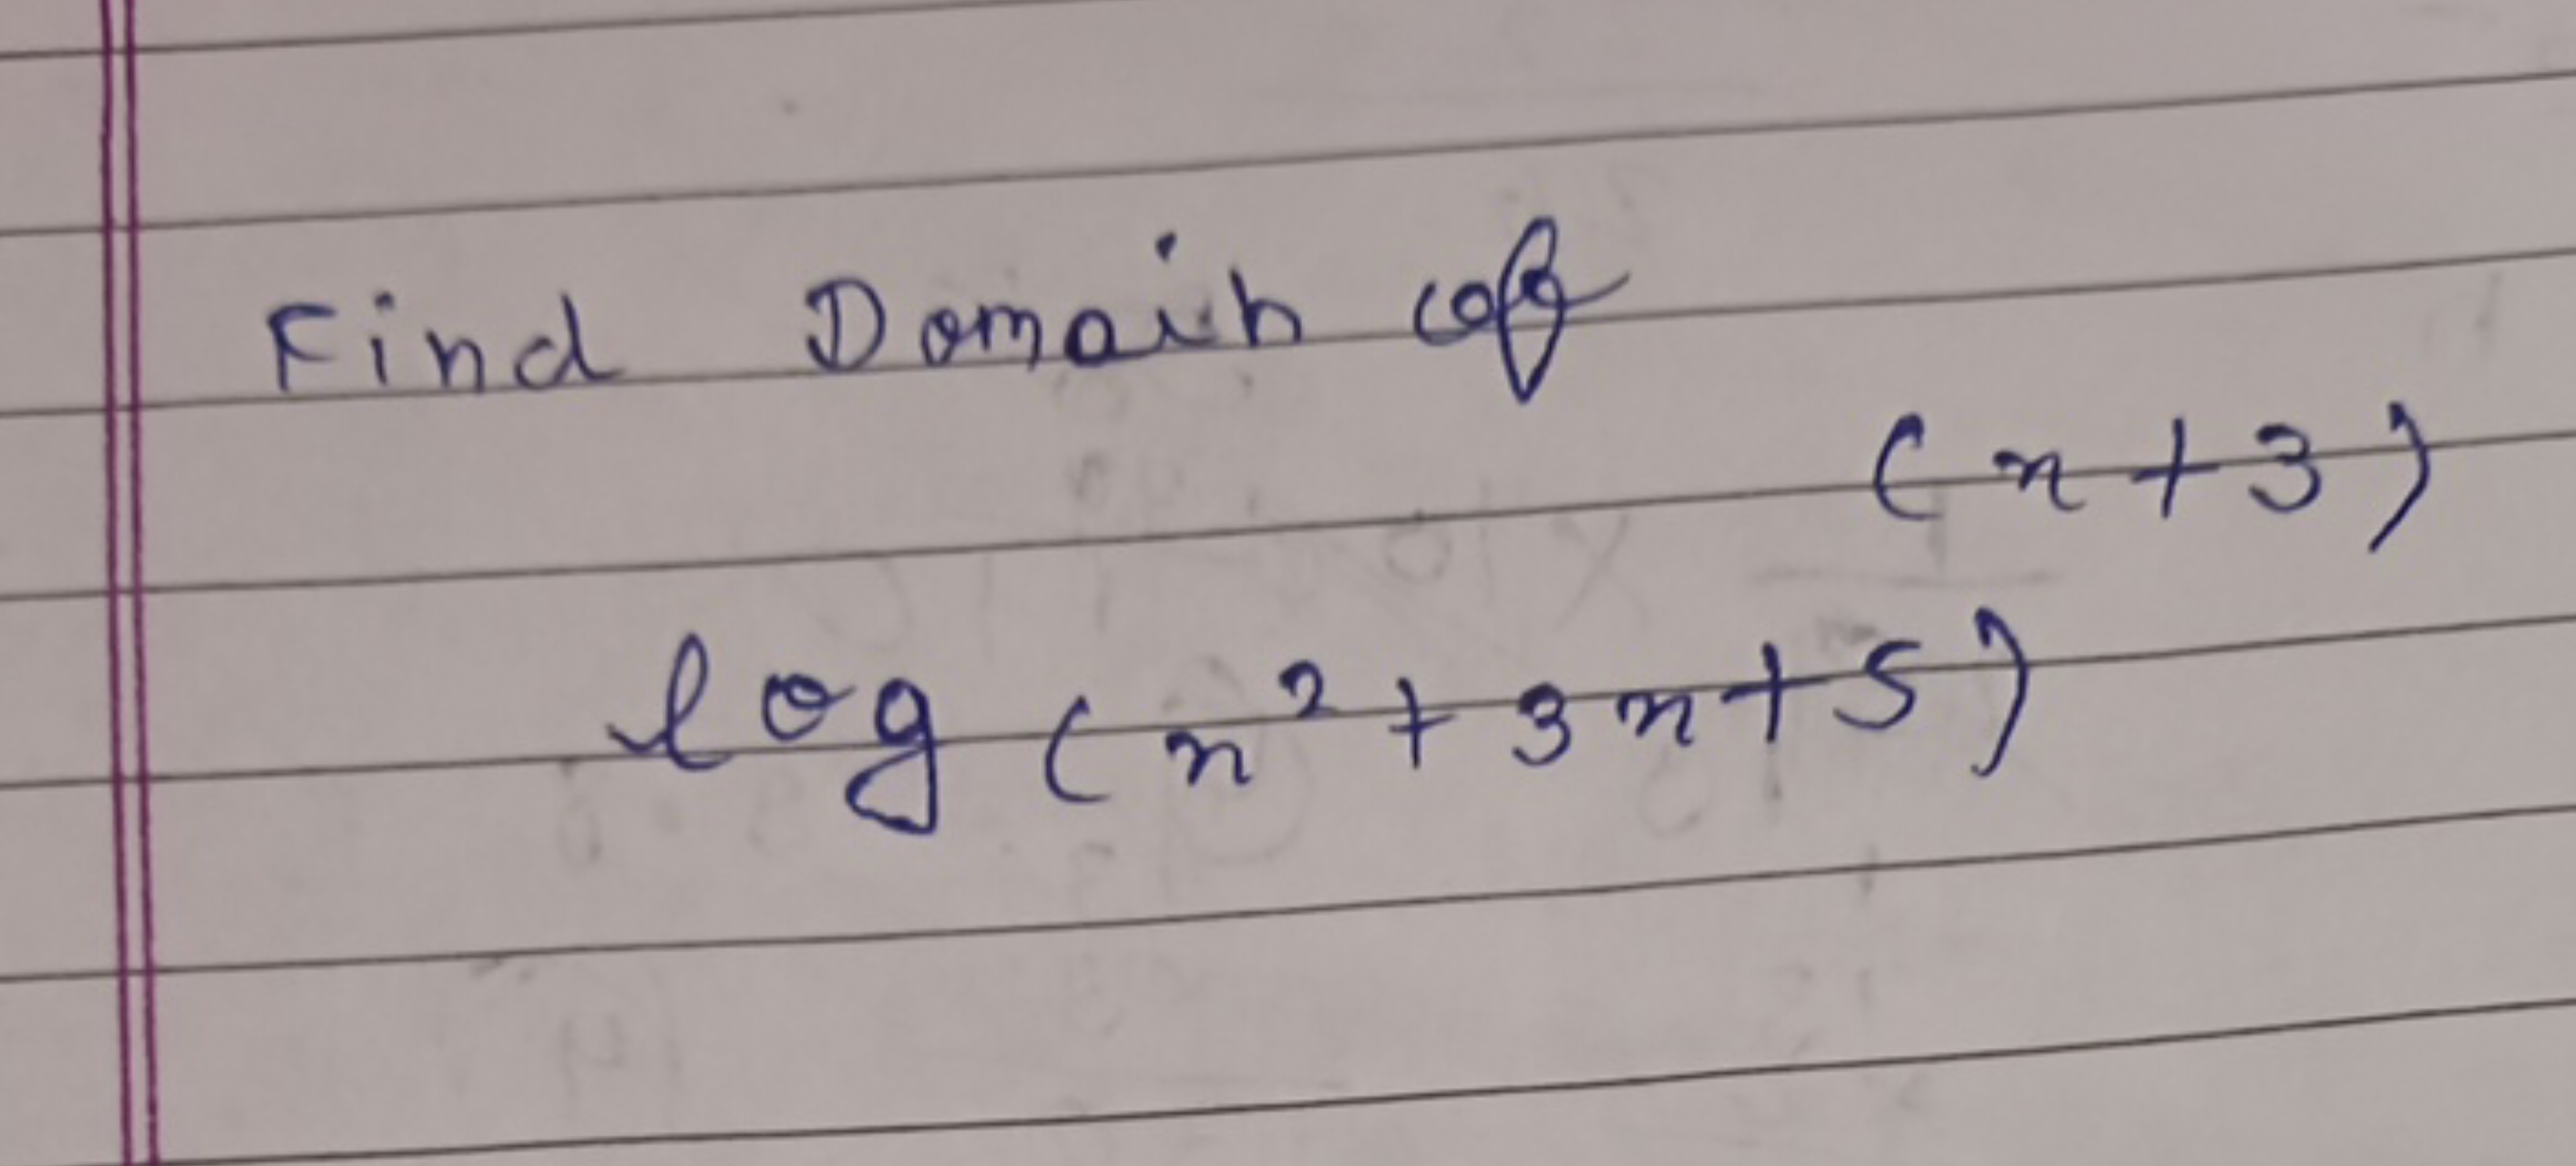 Find Domain of
(x+3)
log (x²+3x+5)